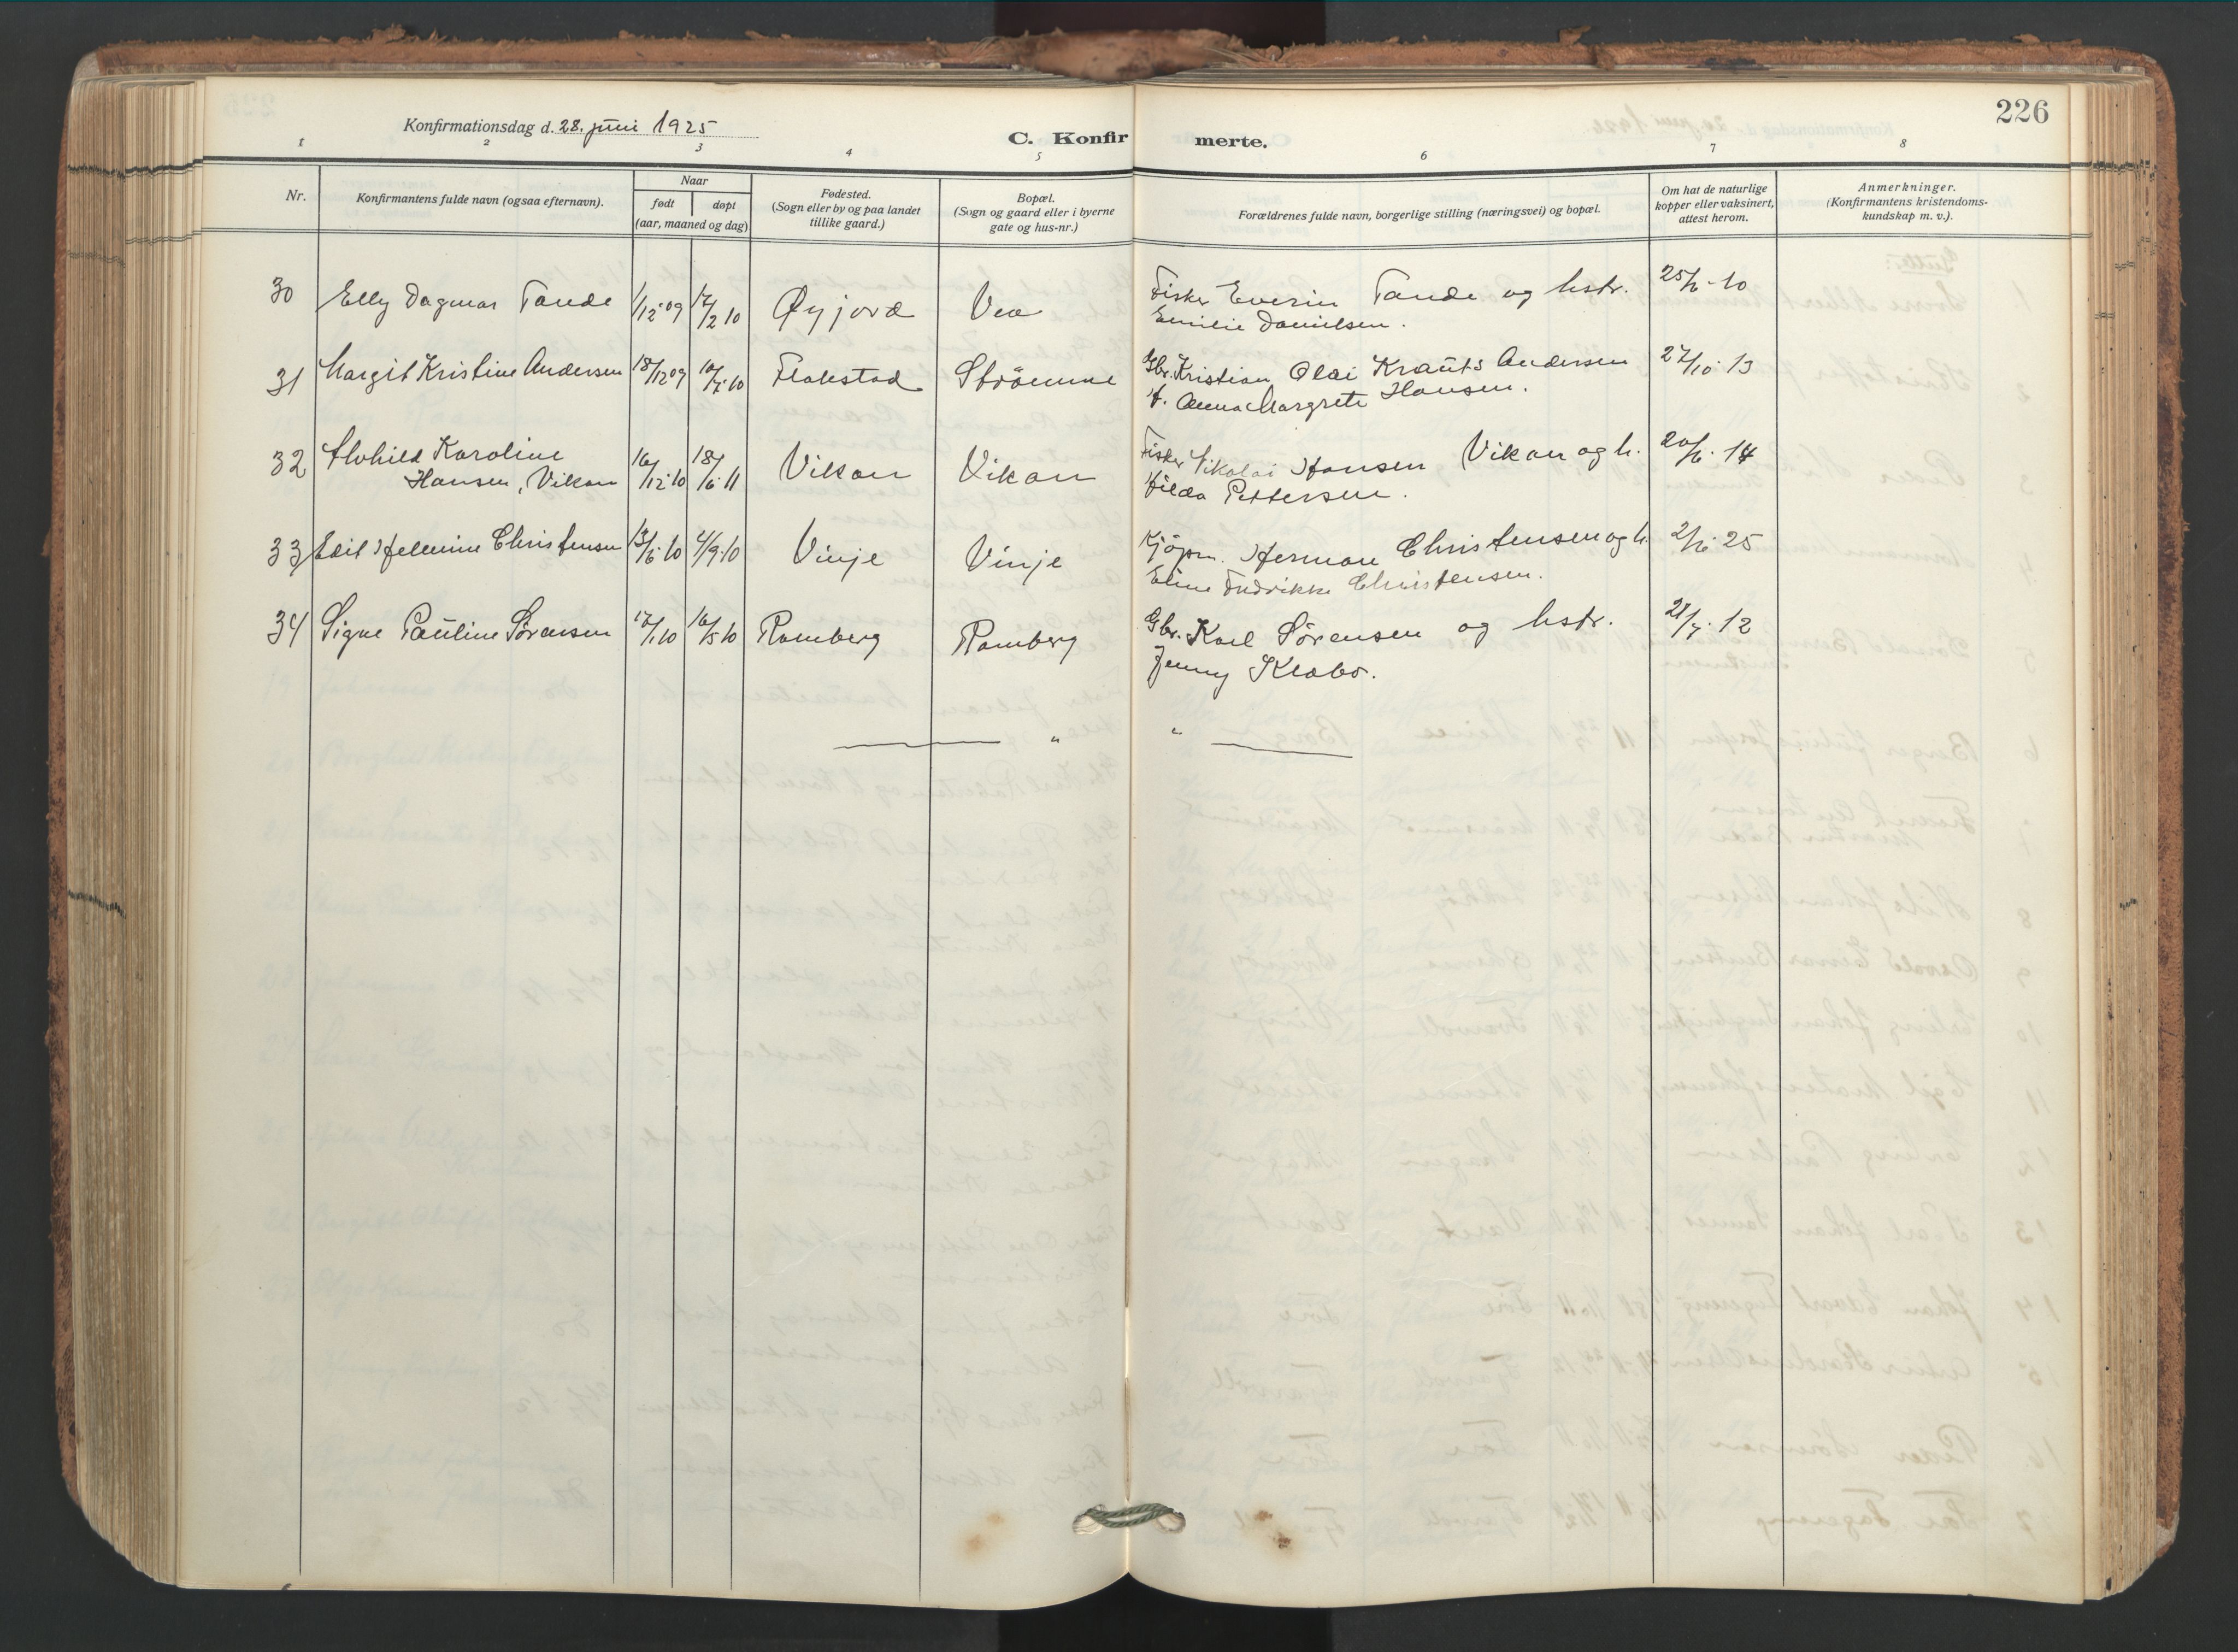 226
Konfirmationsdag d. 28. juni 1925
C. Konfirmerte.
1 2 3 4 5 6 7 8
Nr.
Konfirmantens fulde navn (ogsaa efternavn).
Naar
født døpt
(aar, maaned og dag)
Fødested.
(Sogn eller by og paa landet
tillike gaard.)
Bopæl.
(Sogn og gaard eller i byerne
gate og hus-nr.)
Forældrenes fulde navn, borgerlige stilling (næringsvei) og bopæl.
Om hat de naturlige
kopper eller vaksinert,
attest herom.
Anmerkninger.
(Konfirmantens kristendoms-
kundskap m. v.).
30 Elly Dagmar Tande 1/12·09 17/2 10 Øyjord Vea Fisker Everin Tande og hstr. 25/6·10
Emilie Danielsen.
31 Margit Kristine Andersen 18/12 09 10/7·10 Flakstad Strömme Gbr. Kristian Olai Krauts Andersen 27/10·13
h. Anna Margrete Hansen.
32 Alvhild Karoline
Hansen, Vikan 16/12·10 18/6·11 Vikan Vikan Fisker Nikolai Hansen Vikan og h. 20/6·14
Hilda Pettersen.
33 Edit Helmine Christensen 13/6·10 4/9·10 Vinje Vinje Kjöpm. Herman Christensen og h. 2/6·25
Eline Fredrikke Christensen.
34 Signe Pauline Sørensen 17/1 10 16/5 10 Ramberg Ramberg Gbr. Karl Sørensen og hstr. 21/7·12
Jenny Klæbo.
— " " —